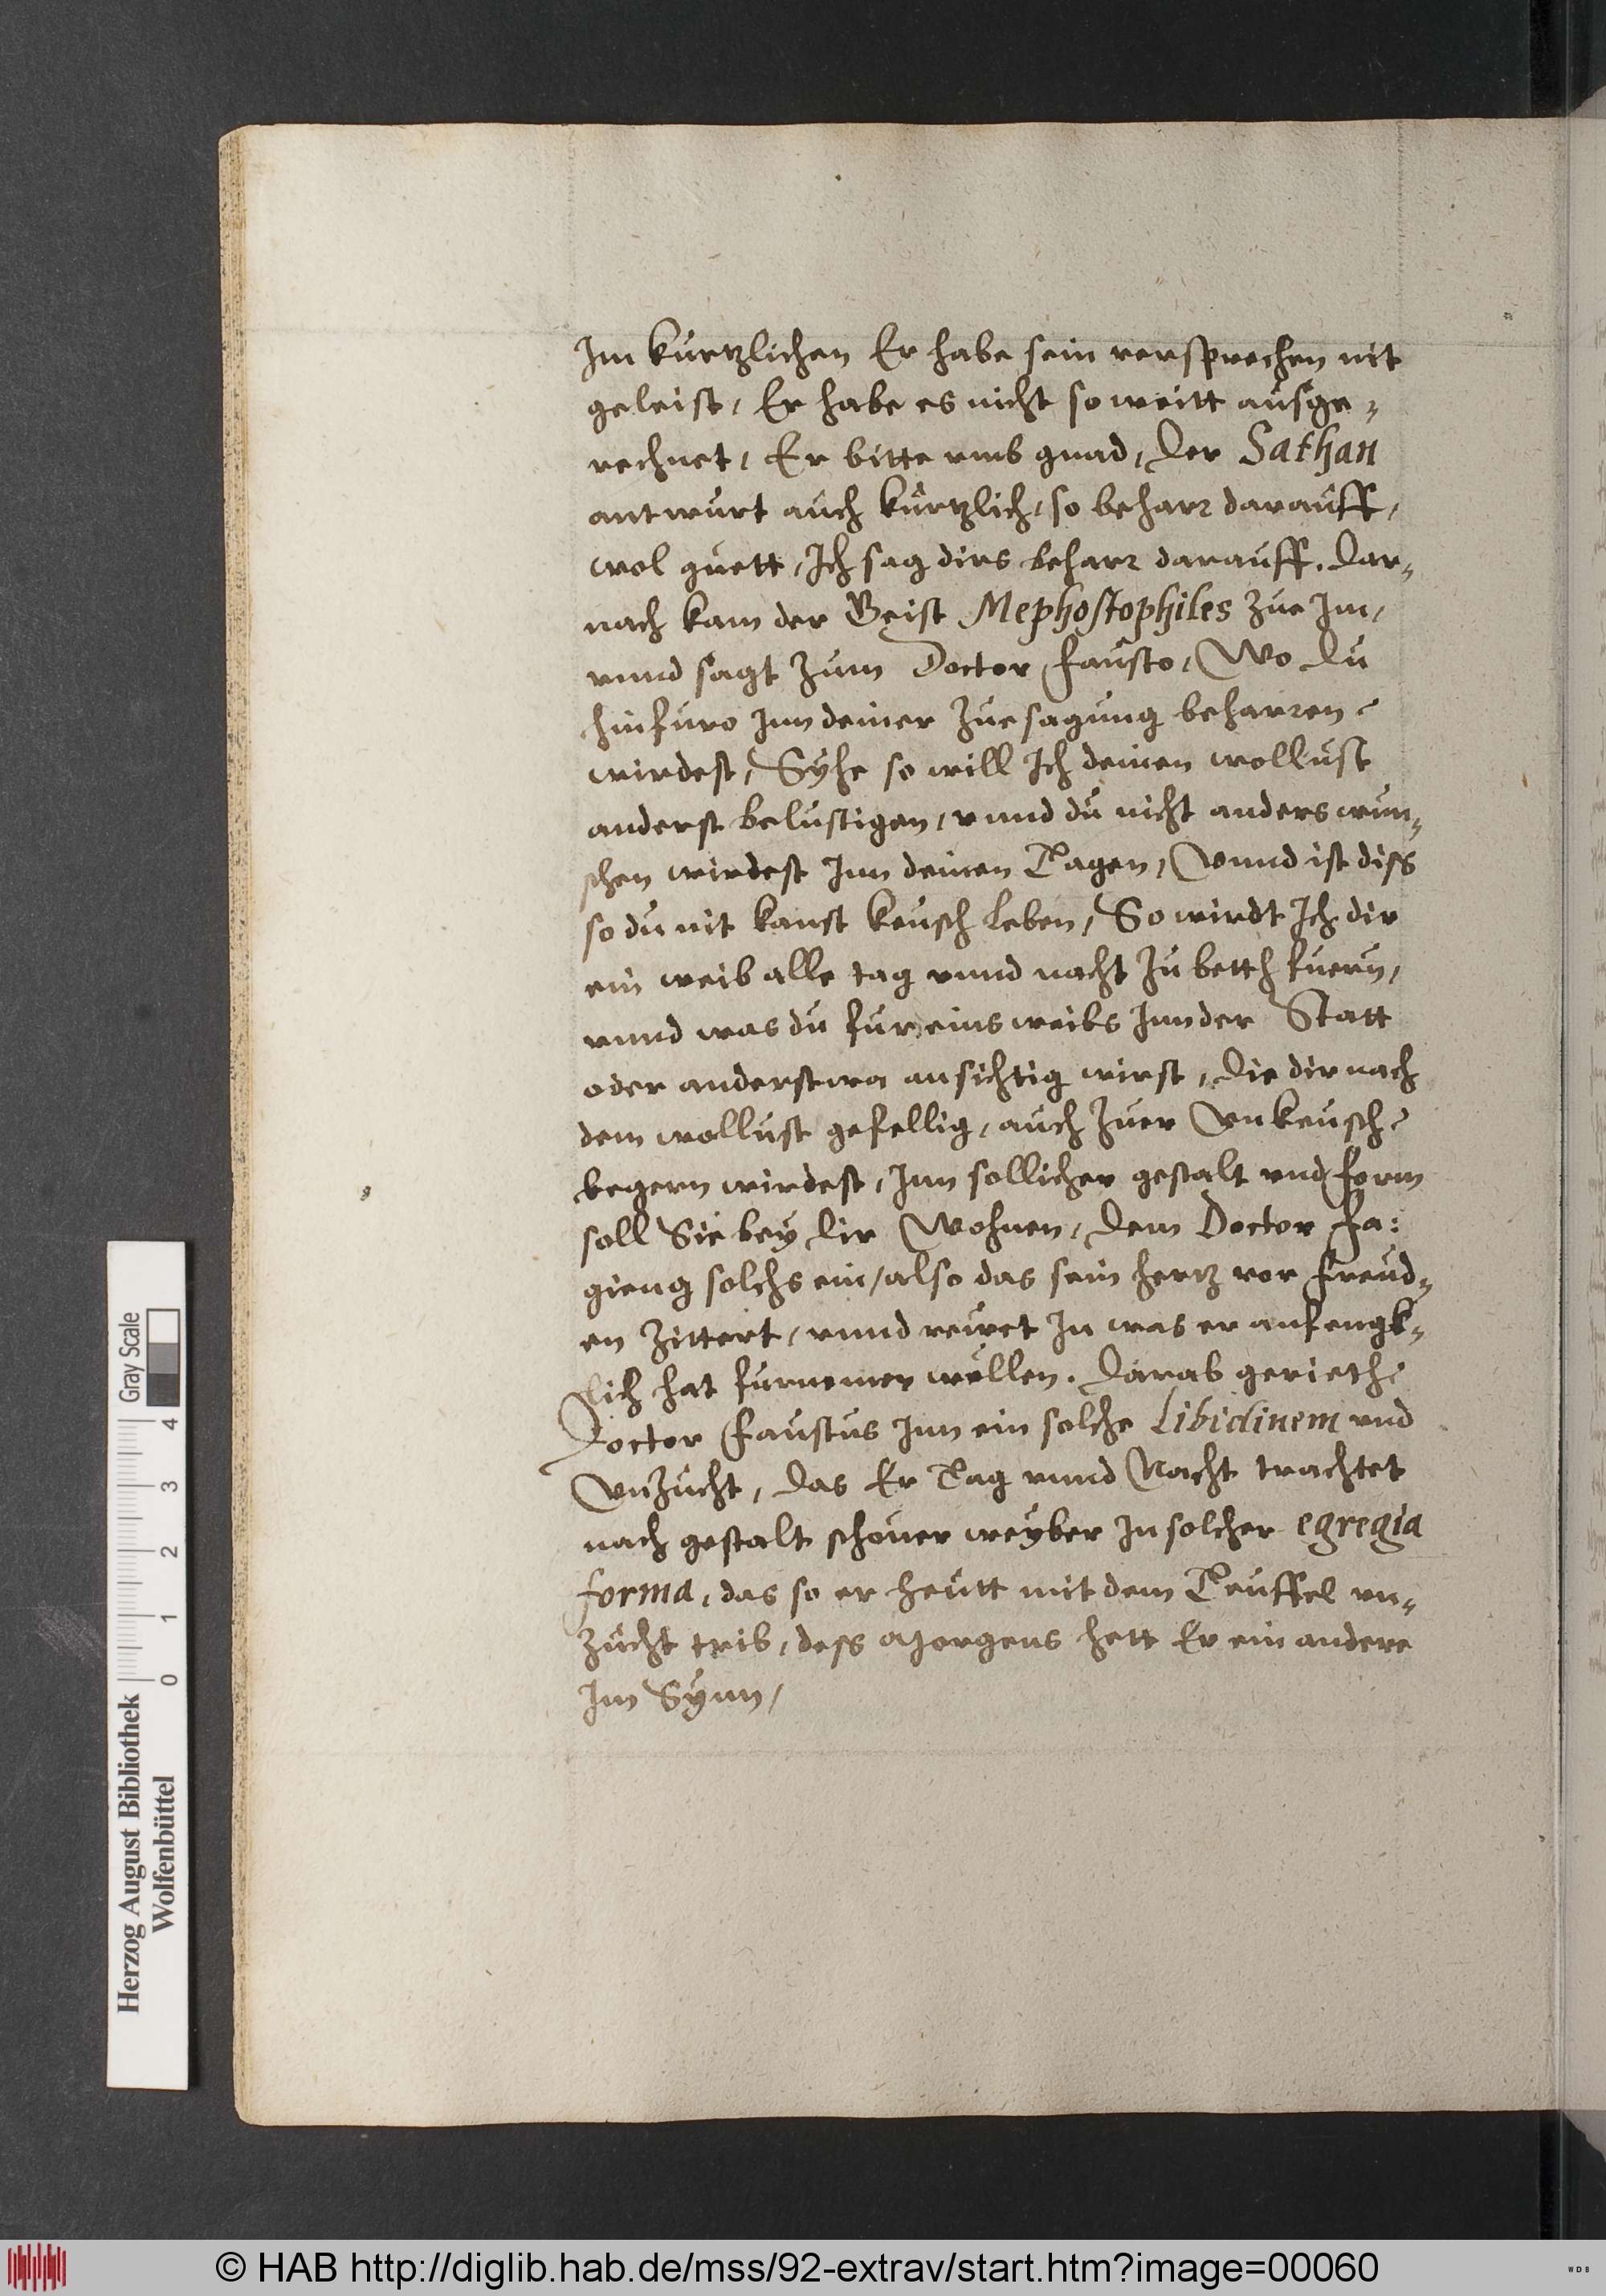 Im kurtzlichen Er habe sein versprechen nit
geleist, Er habe es nicht so weitt ausge-
rechnet, Er bitte vmb gnad, Der Sathan
antwurt auch kurtzlich, so beharr darauff,
wol guett, Ich sag dirs beharr darauff. Dar-
nach kam der Geist Mephostophiles zue Im,
vnnd sagt zum Doctor Fausto, Wo du
hinfuro Inn deiner zuesagung beharren
wirdest, Syhe so will Ich deinen wollust
anderst belustigen, vnnd du nicht anders wun-
schen wirdest Inn deinen Tagen, Vnnd ist diss
so du nit kanst keusch leben, So wirdt Ich dir
ein weib alle tag vnnd nacht zu betth fuern,
vnnd was du fur eins weibs Inn der Statt
oder anderstwa ansichtig wirst, Die dir nach
dem wollust gefellig, auch zuer Vnkeusch
begern wirdest, Inn sollicher gestalt vnd form
soll Sie bey dir Wohnen, Dem Doctor Fa:
gieng solchs ein, also das sein hertz vor freud-
en zittert, vnnd rewet In was er anfengk-
lich hat furnemen wöllen. Darab geriethe
Doctor Faustus Inn ein solche Libidinem vnd
Vnzucht, das Er Tag vnnd Nacht trachtet
nach gestalt schoner weyber In solcher egregia
forma, das so er heutt mit dem Teuffel vn-
zucht trib, dess Morgens hett Er ein andere
Im Synn,
Herzog August Bibliothek
Wolfenbüttel
0 1 2 3 4
Gray Scale
© HAB http://diglib.hab.de/mss/92-extrav/start.htm?image=00060
WDB